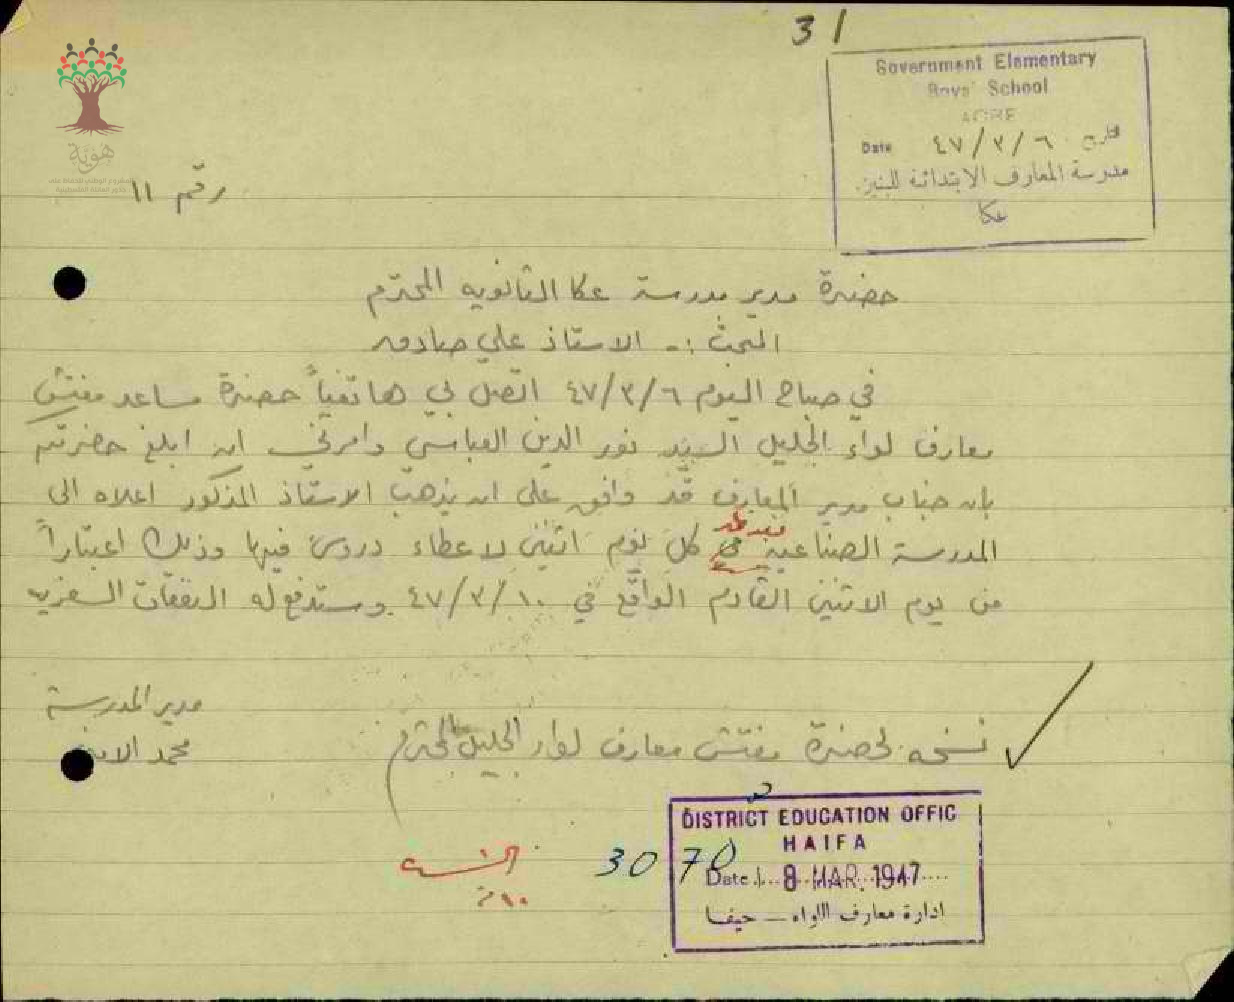 31
Government Elementary
Boys' School
ACRE
Date ٤٧/٣/٦ التاريخ
مدرسة المعارف الابتدائية للبنين
عكا
هوية
رقم ١١
حضرة مدير مدرسة عكا الثانويه المحترم
البحث :- الاستاذ علي صادق
في صباح اليوم ٤٧/٣/٦ اتصل بي هاتفياً حضرة مساعد مفتش
معارف لواء الجليل السيد نور الدين العباسي وامرني ان ابلغ حضرتكم
بان جناب مدير المعارف قد وافق على ان يذهب الاستاذ المذكور اعلاه الى
المدرسة الصناعية في كل يوم اثنين لاعطاء دروس فيها وذلك اعتباراً
من يوم الاثنين القادم الواقع في ٤٧/٣/١٠ وستدفع له النفقات السفريه
مدير المدرسة
محمد
نسخه لحضرة مفتش معارف لواء الجليل المحترم
DISTRICT EDUCATION OFFIC
HAIFA
3070
Date 8 MAR. 1947
ادارة معارف اللواء — حيفا